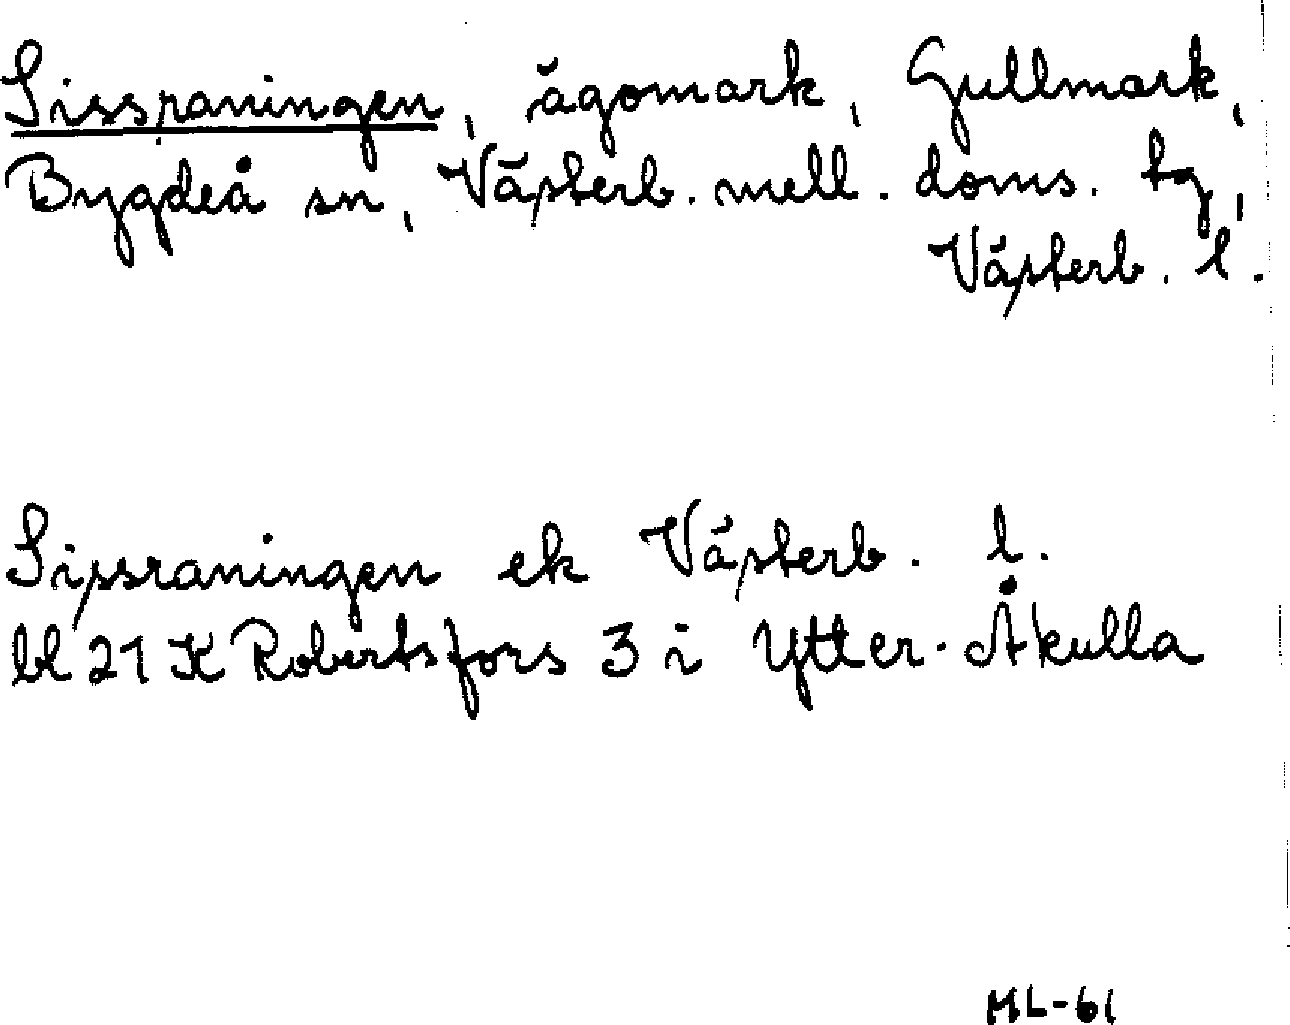 Sissraningen, ägomark, Gullmark,
Bygdeå sn, Västerb. mell. doms. tg,
Västerb. l.
Sissraningen ek Västerb. l.
bl 21 K Robertsfors 3 i Ytter-Åkulla
ML-61